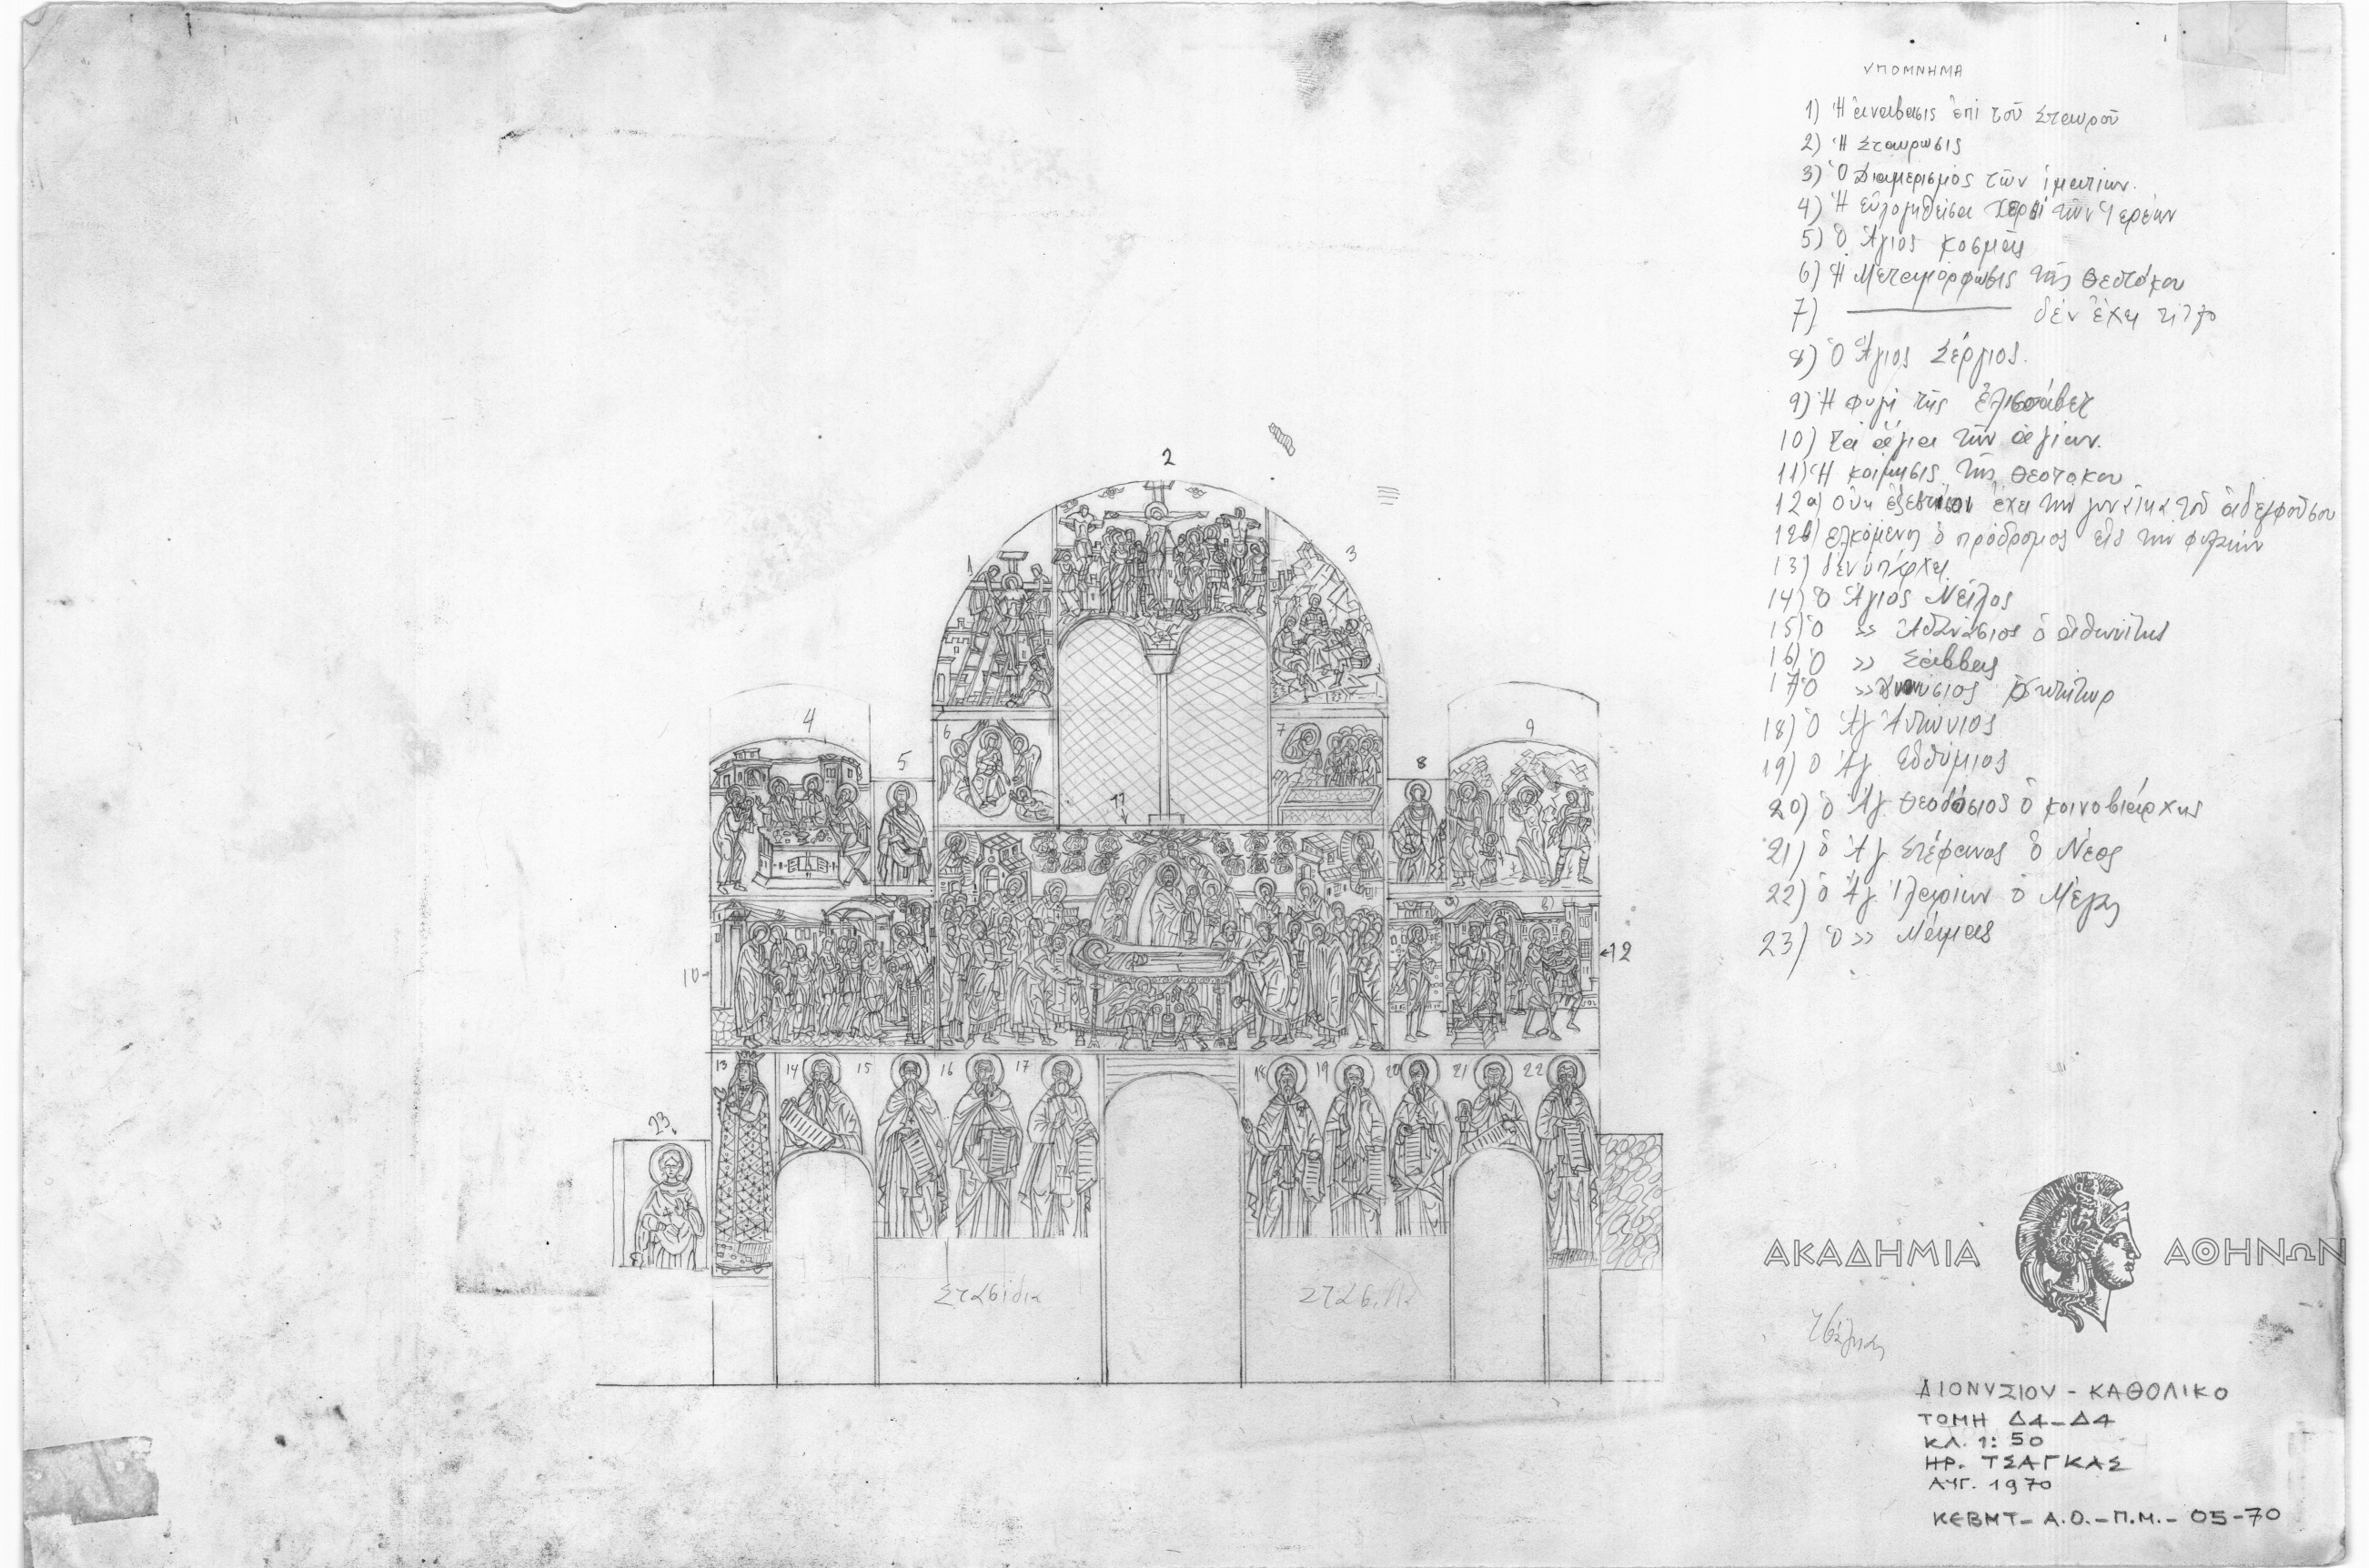 ΥΠΟΜΝΗΜΑ
1) Ἡ ἀνάβασις ἐπί τοῦ Σταυροῦ
2) Ἡ Σταυρωσις
3) Ὁ Διαμερισμὸς τῶν ἱματίων.
4) Ἡ εὐλογηθεῖσα τῶν Ἱερέων
5) Ὁ Ἅγιος Κοσμᾶς
6) Ἡ Μεταμόρφωσις τῆς Θεοτόκου
7) δέν ἔχει τίτλο
8) Ὁ Ἅγιος Σέργιος.
9) Ἡ φυγὶ τῆς Ἐλισσάβετ
10) τὰ ἅγια τῶν ἁγίων.
11) Ἡ κοίμησις τῆς Θεοτοκου
12α) οὐκ ἔχει την γυναίκα τοῦ ἀδελφοῦσου
12β) ελκόμενη ὁ πρόδρομος εἰς την φυλακὴν
13) δέν ὑπάρχει
14) Ὁ Ἅγιος Νεῖλος
15) Ὁ » Ἀθανάσιος ὁ ἀθωνίτης
16) Ὁ » Σάββας
17) Ὁ »
18) Ὁ Ἅγ Ἀντώνιος
19) Ὁ Ἅγ. Εὐθύμιος
20) ὁ Ἅγ. Θεοδόσιος ὁ κοινοβιάρχης
21) ὁ Ἅγ. Στέφανος ὁ Νέος
22) ὁ Ἅγ. Ἱλαρίων ὁ Μέγας
23) Ὁ » Μάμας
2
1
3
4
5
6
7
8
9
11
10
12
13
14
15
16
17
18
19
20
21
22
23
Στασίδια
Στασίδια
ΑΚΑΔΗΜΙΑ ΑΘΗΝΩΝ
ΔΙΟΝΥΣΙΟΥ - ΚΑΘΟΛΙΚΟ
ΤΟΜΗ Δ4-Δ4
ΚΛ. 1:50
ΗΡ. ΤΣΑΓΚΑΣ
ΑΥΓ. 1970
ΚΕΒΜΤ - Α.Ο. - Π.Μ. - 05-70